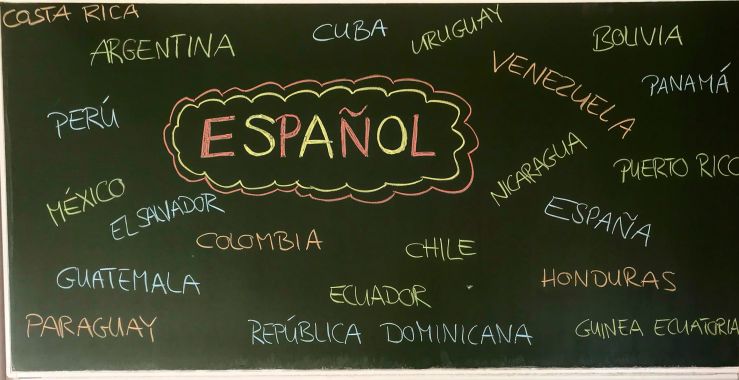 COSTA RICA
ARGENTINA
CUBA
URUGUAY
BOLIVIA
VENEZUELA
PANAMÁ
PERÚ
ESPAÑOL
NICARAGUA
PUERTO RICO
MÉXICO
EL SALVADOR
ESPAÑA
COLOMBIA
CHILE
GUATEMALA
ECUADOR
HONDURAS
PARAGUAY
REPÚBLICA DOMINICANA
GUINEA ECUATORIA